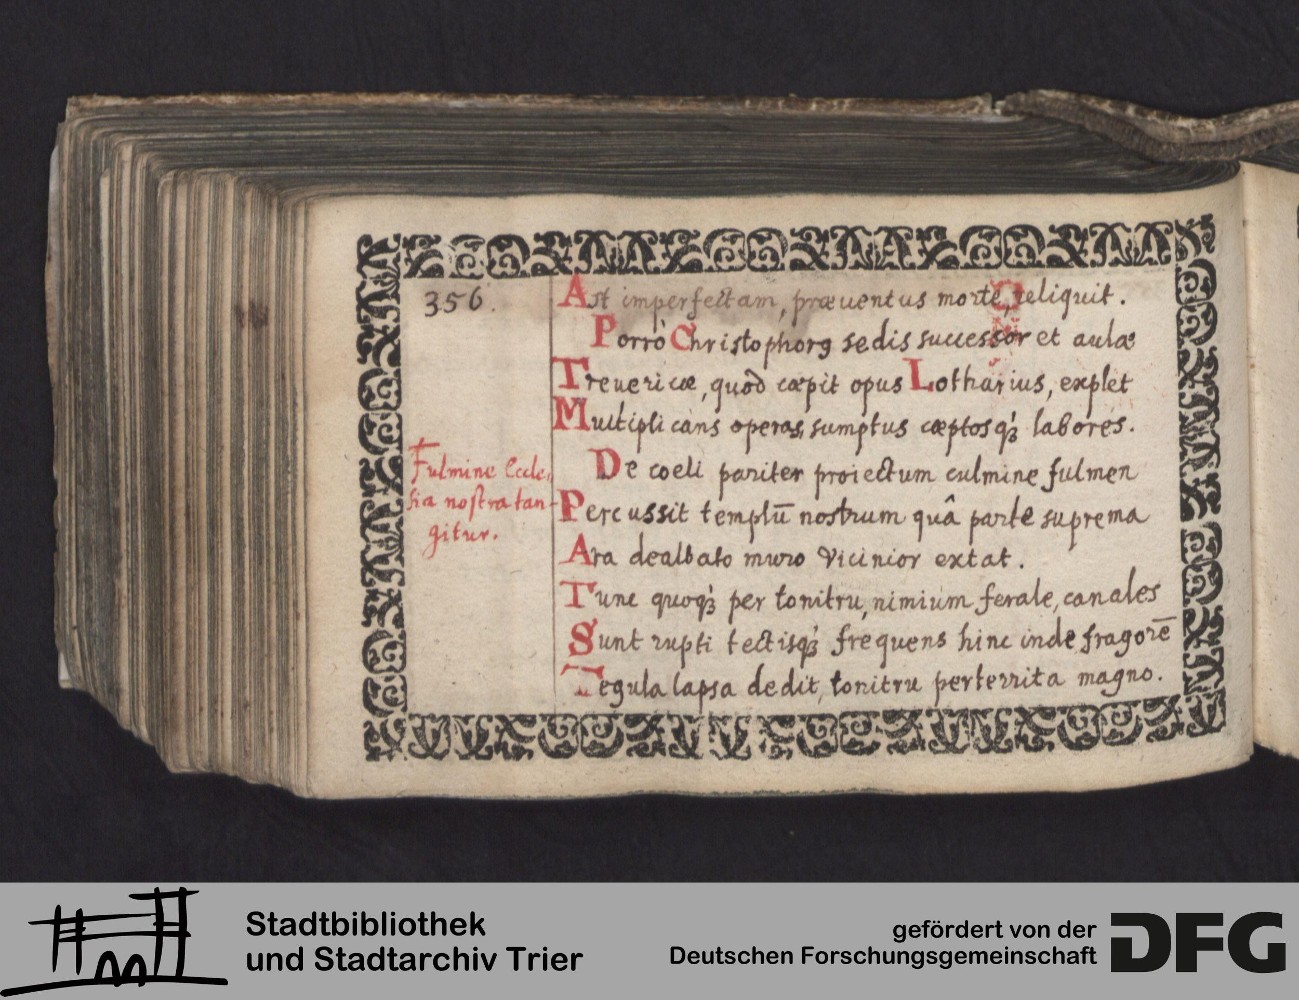 356.
Ast imperfectam, præuentus morte, reliquit.
Porrò Christophorꝰ sedis successor et aulæ
Treuericæ, quod cæpit opus Lotharius, explet
Multiplicans operas, sumptus cæptosqꝫ labores.
Fulmine Eccle,
sia nostra tan-
gitur.
De coeli pariter proiectum culmine fulmen
Percussit templū nostrum quâ parte suprema
Ara dealbato muro vicinior extat.
Tunc quoqꝫ per tonitru, nimium ferale, canales
Sunt rupti tectisqꝫ frequens hinc inde fragorē
Tegula lapsa dedit, tonitru perterrita magno.
Stadtbibliothek
und Stadtarchiv Trier
gefördert von der
Deutschen Forschungsgemeinschaft
DFG